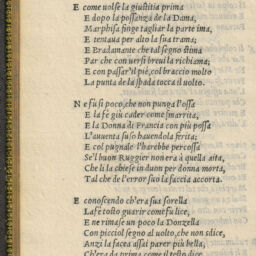 E come uolse la giustitia prima
E dopo la possanza de la Dama,
Marphisa finge tagliar la parte ima,
E tentaua per alto la sua trama;
E Bradamante che tal segno stima
Par che con uersi breui la richiama;
E con passar'il piè, col braccio molto
La punta de la spada tocca il uolto.
Ne fu sì poco, che non punga l'ossa
E la fè giù cader come smarrita,
E la Donna di Francia con più possa
L'auuenta suso hauendola ferita;
E col pugnale l'harebbe percossa
Se'l buon Ruggier non era à quella aita,
Che li la chiese in duon per donna morta,
Tal che de l'error suo fu faceta accorta.
E conoscendo ch'era sua sorella
La fè tosto guarir come fu lice,
E ne rimase un poco la Donzella
Con picciol segno al uolto, che non slice,
Anzi la facea assai parer più bella,
Ch'era da prima come il testo dice